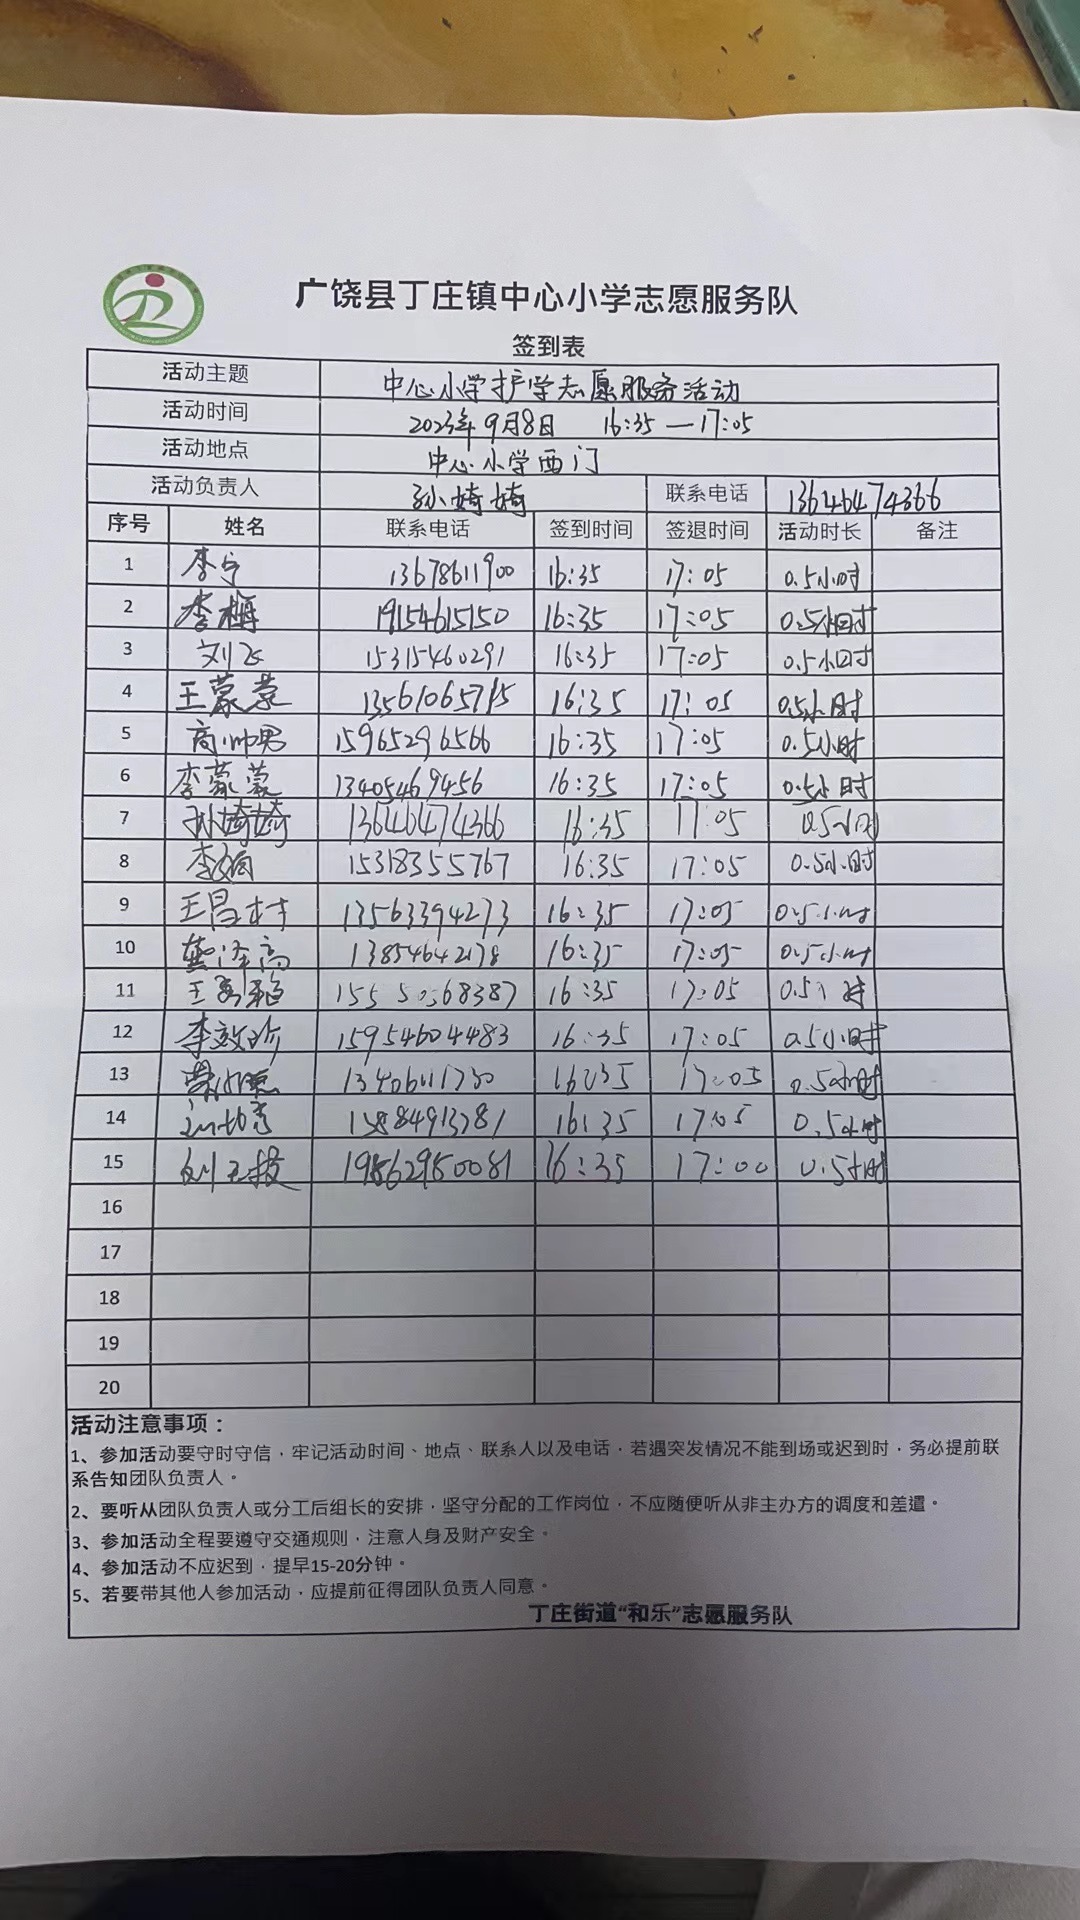 广饶县丁庄镇中心小学志愿服务队
签到表
活动主题 中心小学护学志愿服务活动
活动时间 2023年9月8日 16:35—17:05
活动地点 中心小学西门
活动负责人 孙婍婍 联系电话 13646474366
序号 姓名 联系电话 签到时间 签退时间 活动时长 备注
1 李宁 13678611900 16:35 17:05 0.5小时
2 李梅 19154615150 16:35 17:05 0.5小时
3 刘飞 15315460291 16:35 17:05 0.5小时
4 王蒙蒙 16:35 17:05 0.5小时
5 商帅男 15965296566 16:35 17:05 0.5小时
6 李蒙蒙 13405469456 16:35 17:05 0.5小时
7 孙婍婍 13646474366 16:35 17:05 0.5小时
8 15318355767 16:35 17:05 0.5小时
9 王昌村 13563394273 16:35 17:05 0.5小时
10 龚泽高 13854642178 16:35 17:05 0.5小时
11 15550568387 16:35 17:05 0.5小时
12 李效珍 15954604483 16:35 17:05 0.5小时
13 16:35 17:05 0.5小时
14 16:35 17:05 0.5小时
15 19862980081 16:35 17:00 0.5小时
16
17
18
19
20
活动注意事项：
1、参加活动要守时守信，牢记活动时间、地点、联系人以及电话，若遇突发情况不能到场或迟到时，务必提前联
系告知团队负责人。
2、要听从团队负责人或分工后组长的安排，坚守分配的工作岗位，不应随便听从非主办方的调度和差遣。
3、参加活动全程要遵守交通规则，注意人身及财产安全。
4、参加活动不应迟到，提早15-20分钟。
5、若要带其他人参加活动，应提前征得团队负责人同意。
丁庄街道“和乐”志愿服务队